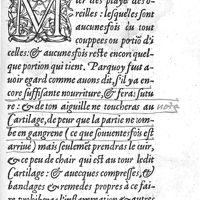 M
ler des playes des o-
reilles: lesquelles sont
aucunesfois du tout
couppees ou portiõ d'i
celles: & aucunesfois reste encorr quel-
que portion qui tient. Parquoy faut a-
uoir egard comme auons dit, s'il ya en-
core suffisante nourriture, & fera: sutu-
re: & de ton aiguille ne toucheras au nota
Cartilage, de peur que la partie ne tom-
be en gangrene (ce que souuentesfois est
arriué) mais seulement prendras le cuir,
& ce peu de chair qui est au tour ledit
Cartilage: & auecques compresses, &
bandages & remedes propres à ce fai-
re prohibera l'inflammation & autres